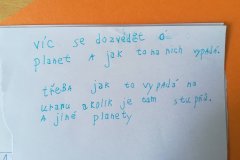 víc se dozvědět o
planet A jak to na nich vypadá.
třeba jak to vypadá na
uranu a kolik je tam stupňů.
A jiné planety
1